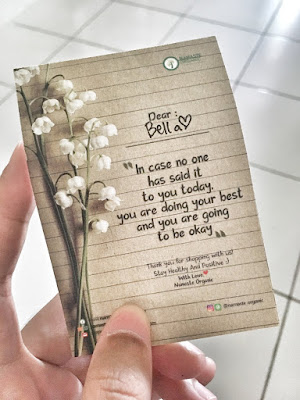 NAMASTE
Dear :
Bella
"In case no one
has said it
to you today.
you are doing your best
and you are going
to be okay"
Thank you for shopping with us!
Stay Healthy And Positive :)
With Love
Namaste Organic
@namaste.organic